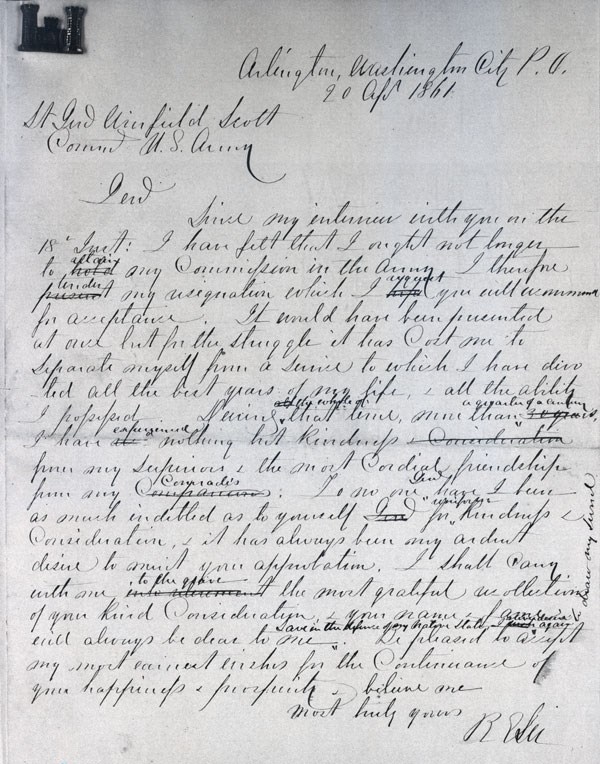 Arlington, Washington City P.O.
20 Apl 1861
Lt Genl Winfield Scott
Commd U.S. Army
Genl
Since my interview with you on the
18th Inst: I have felt that I ought not longer
retain
to hold my Commission in the Army. I therefore
tender suggest
present my resignation which I hope you will recommend
for acceptance. It would have been presented
at once but for the struggle it has Cost me to
separate myself from a service to which I have devo
ted all the best years of my life, & all the ability
I possessed. During the whole of that time, more than a quarter of a century 30 years,
I have experienced nothing but kindness & Consideration
from my Superiors & the most Cordial friendship
from my Comrades Companions. To no one Genl have I been
as much indebted as to yourself Genl for uniform kindness &
Consideration, & it has always been my ardent
desire to merit your approbation. I shall carry
with me to the grave into retirement the most grateful recollection
of your kind Consideration, & your name & fame
will always be dear to me. Save in the defence of my Native State
I never desire again to draw my sword
Be pleased to accept
my most earnest wishes for the Continuance of
your happiness & prosperity & believe me
most truly yours
R E Lee